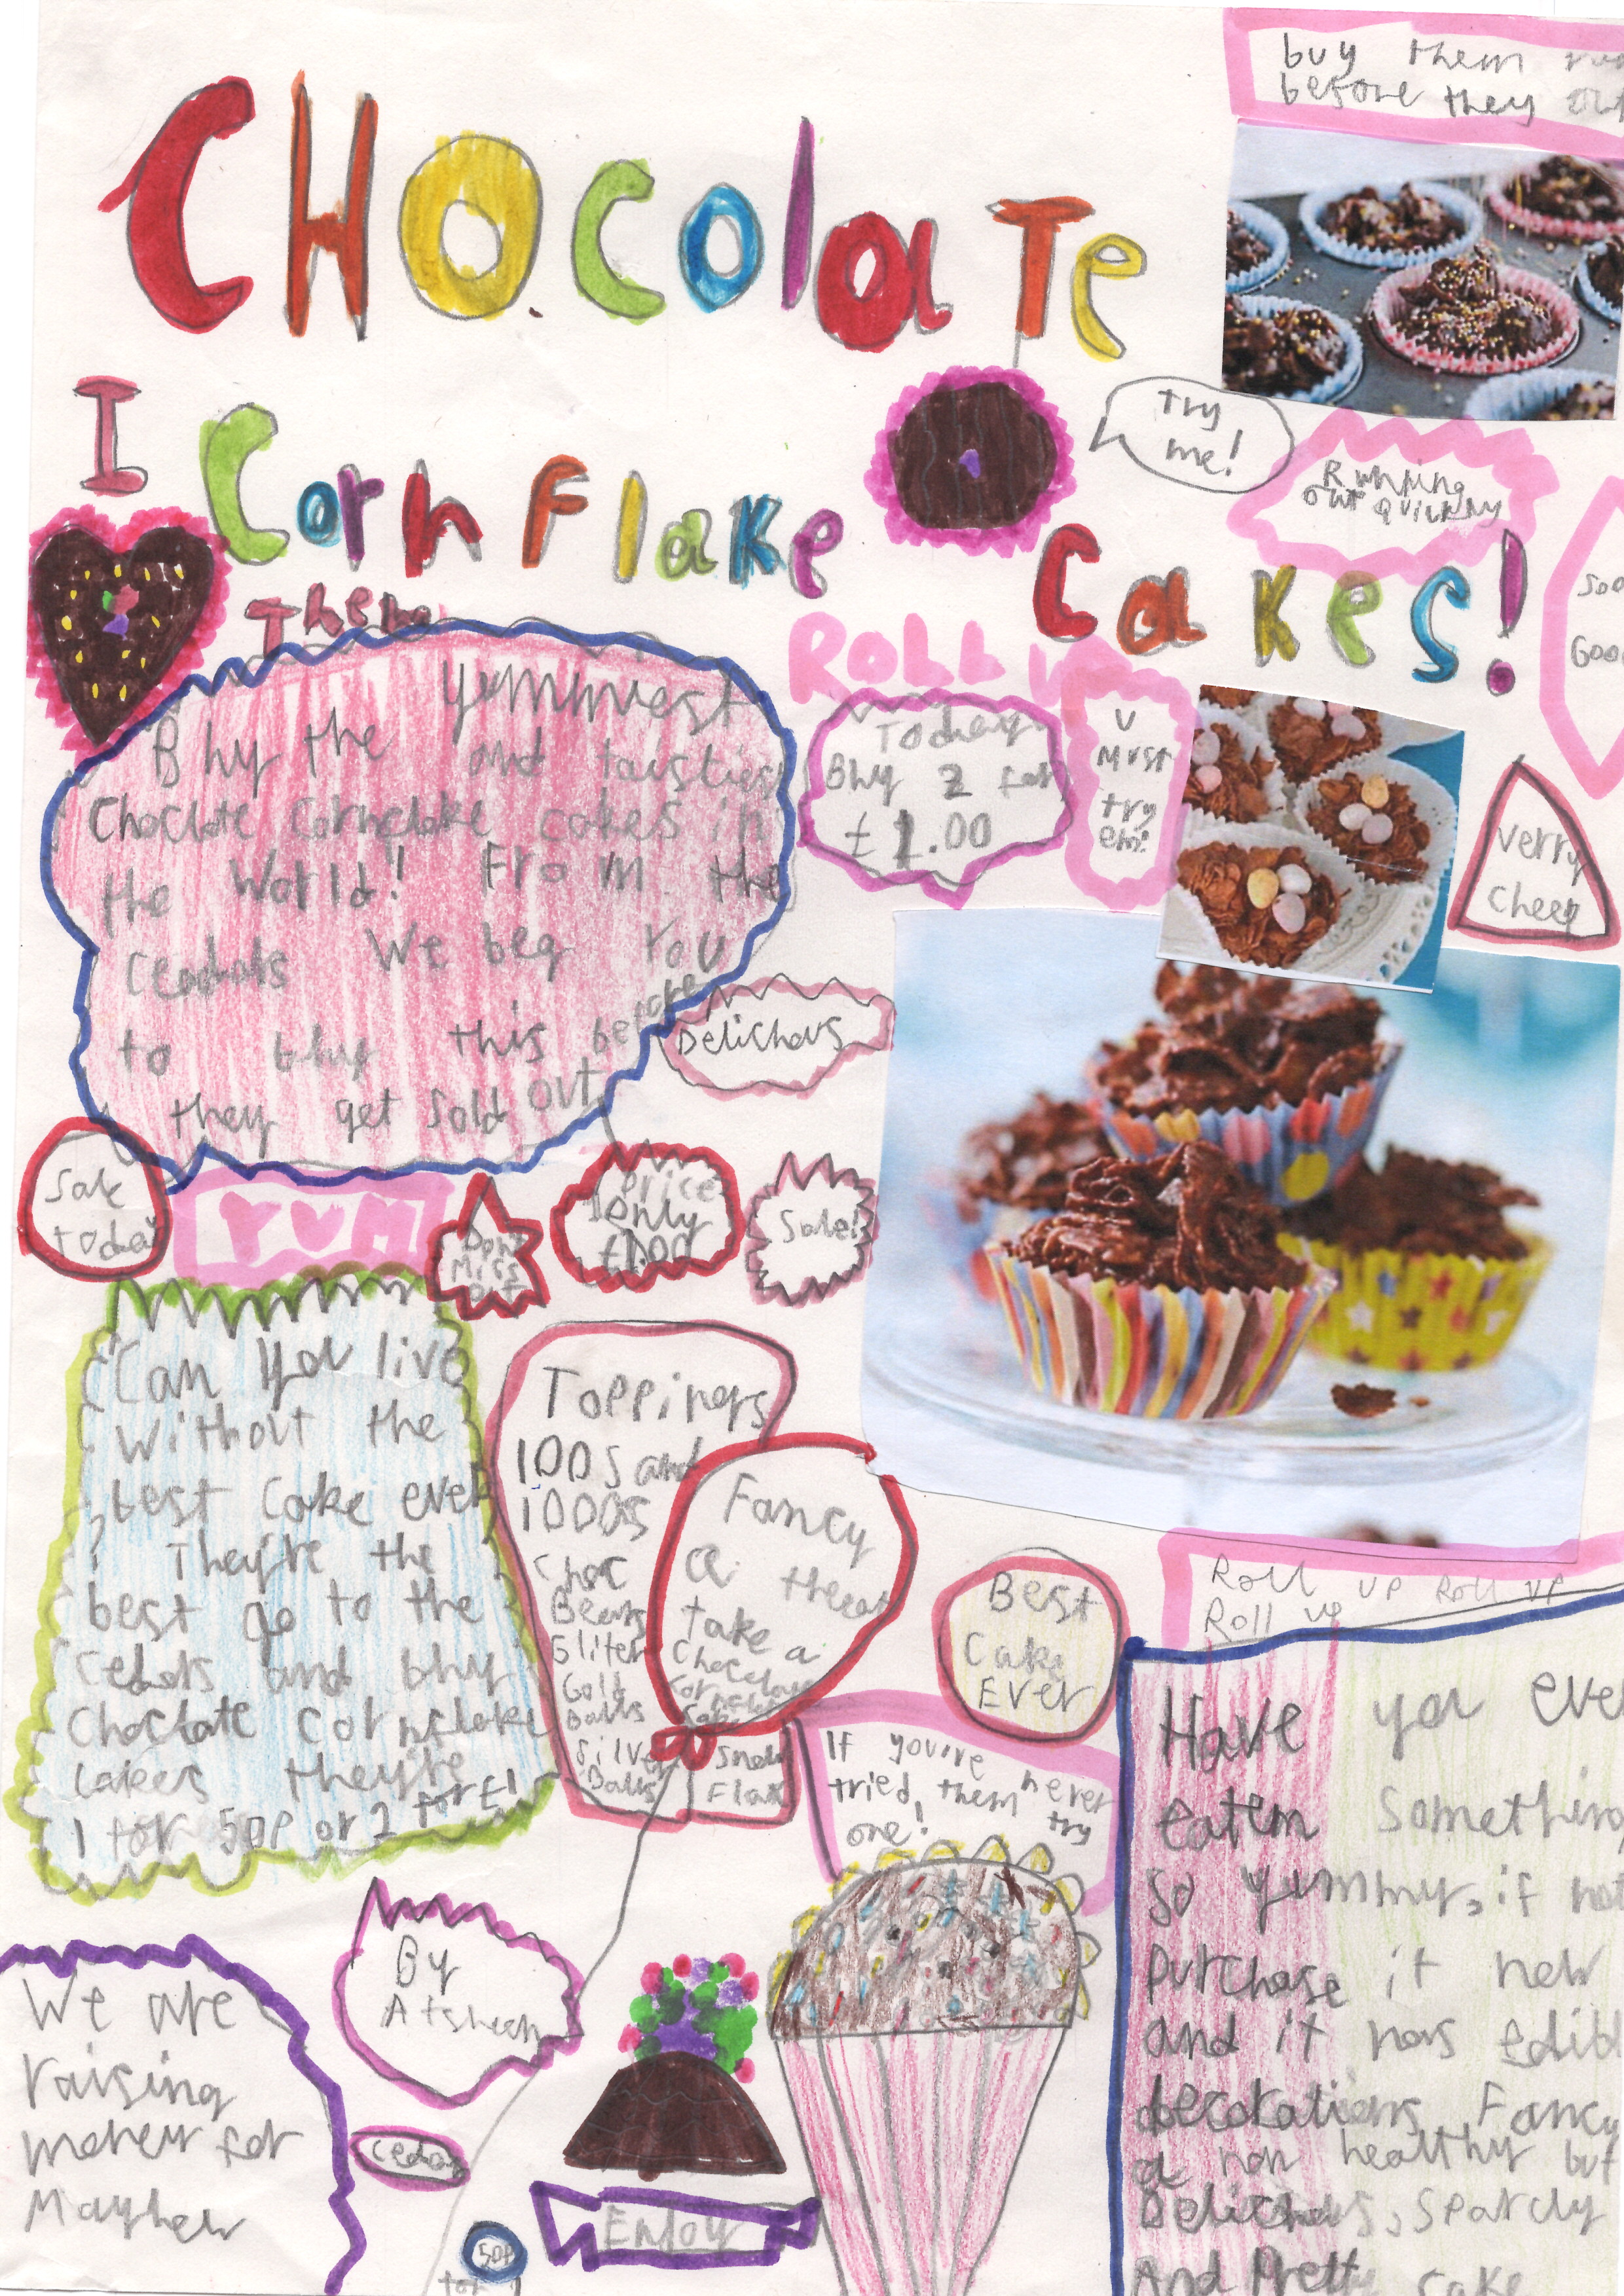 CHOCOLATE
buy them
before they
I
Corn Flake
Cakes!
Them
try
me!
Running
out quickly
ROLL U
Today
Bhy 2 for
£1.00
U
Must
try
em!
verry
cheep
yummiest
Bhy the and taistiest
Choclate Cornclake cakes in
the World! From the
We beg You
to bhy this before
they get Sold OUT
Delichous
Sale
today
YUM
Dont
Miss
out
price
only
Sale!
Can you live
Without the
best Cake ever
? They're the
best go to the
cedars and bhy
Choclate cornclake
cakes they're
1 for 50p or 2 for £1
Toppings
100s and
1000s
Choc
Beans
Gliter
Gold
Balls
Silver
Balls
Snow
Flake
Fancy
a threat
take a
Choclate
Best
Cake
Ever
Roll up Roll up
Roll up
If you've never
tried them try
one!
Have you eve
eatem Something
So yummy, if not
purchase it now
and it has edib
decorations Fancy
a non healthy but
Delichous, Sparcly
And Pretty cake
We are
raising
money for
Mayhew
By
Cedar
Enjoy
50p